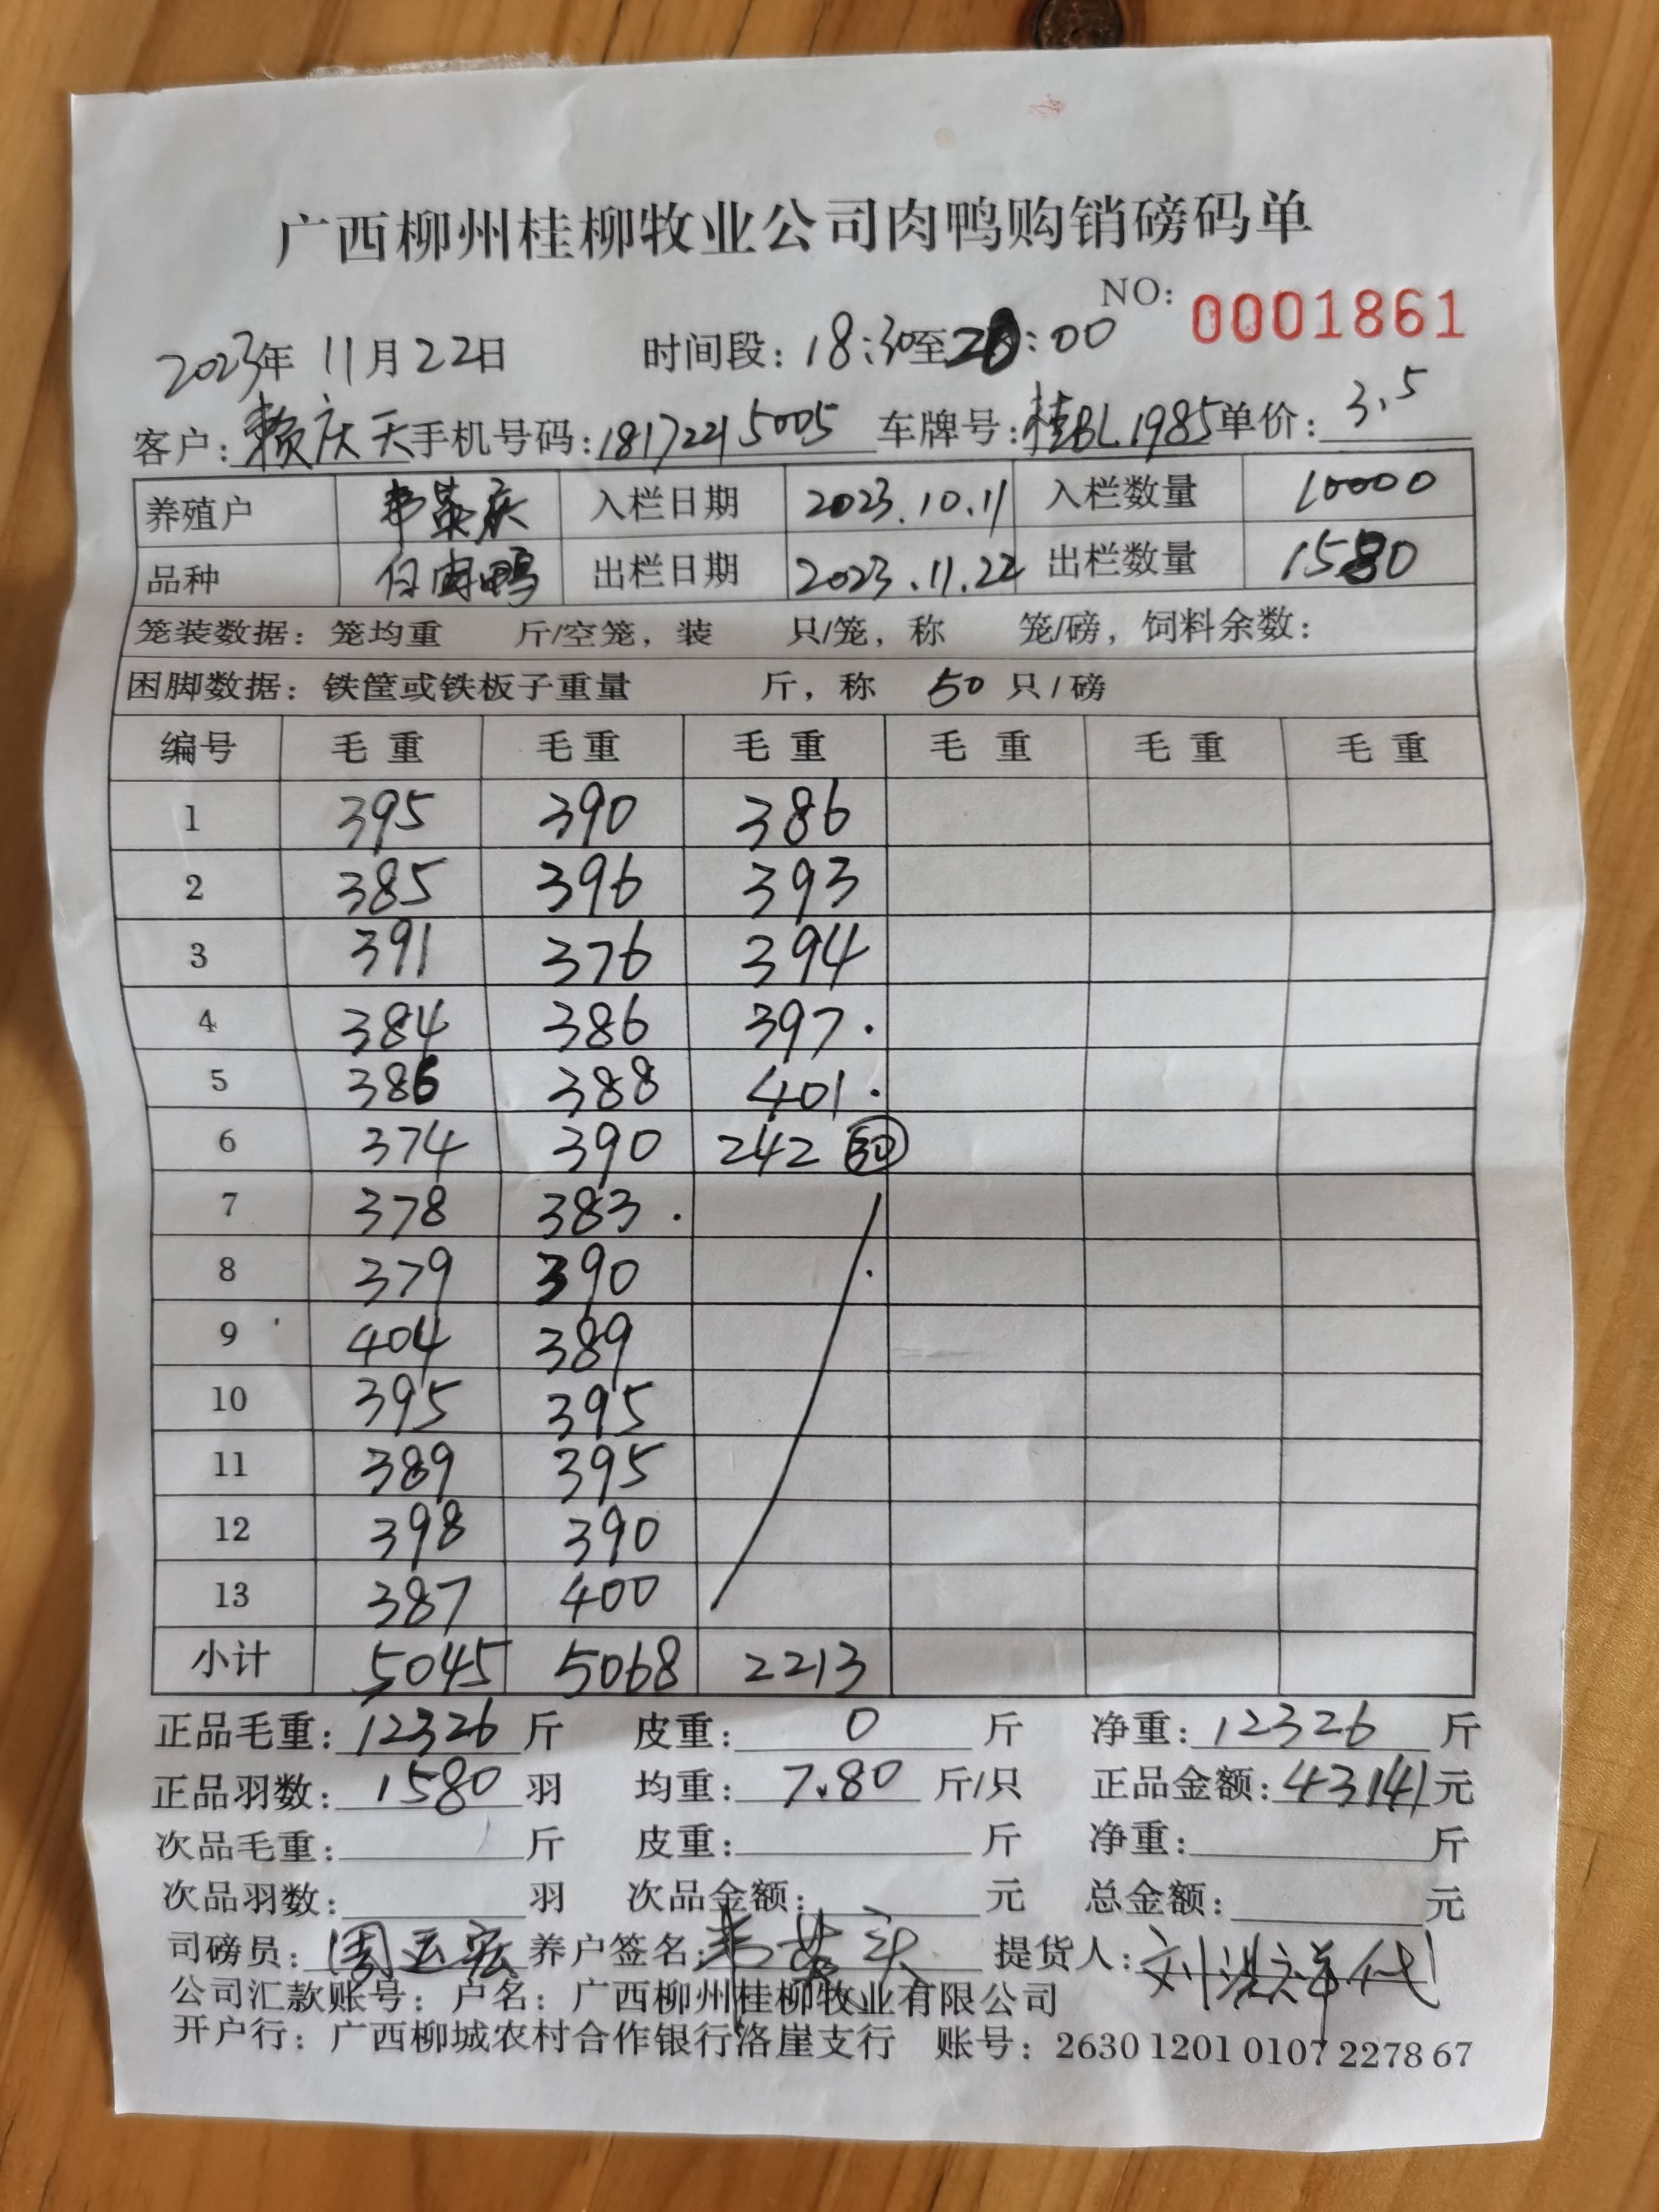 广西柳州桂柳牧业公司肉鸭购销磅码单
NO: 0001861
2023年 11月22日 时间段: 18:30至20:00
客户: 赖庆天 手机号码: 18172215005 车牌号: 桂BL1985 单价: 3.5
养殖户 韦英庆 入栏日期 2023.10.11 入栏数量 10000
品种 白肉鸭 出栏日期 2023.11.22 出栏数量 1580
笼装数据: 笼均重 斤/空笼, 装 只/笼, 称 笼/磅, 饲料余数:
困脚数据: 铁筐或铁板子重量 斤, 称 50 只/磅
编号 毛重 毛重 毛重 毛重 毛重 毛重
1 395 390 386
2 385 396 393
3 391 376 394
4 384 386 397.
5 386 388 401.
6 374 390 242 30
7 378 383.
8 379 390
9 404 389
10 395 395
11 389 395
12 398 390
13 387 400
小计 5045 5068 2213
正品毛重: 12326 斤 皮重: 0 斤 净重: 12326 斤
正品羽数: 1580 羽 均重: 7.80 斤/只 正品金额: 43141元
次品毛重: 斤 皮重: 斤 净重: 斤
次品羽数: 羽 次品金额: 元 总金额: 元
司磅员: 周运宏 养户签名: 韦英庆 提货人: 刘浩祥代
公司汇款账号: 户名: 广西柳州桂柳牧业有限公司
开户行: 广西柳城农村合作银行洛崖支行 账号: 2630 1201 0107 2278 67